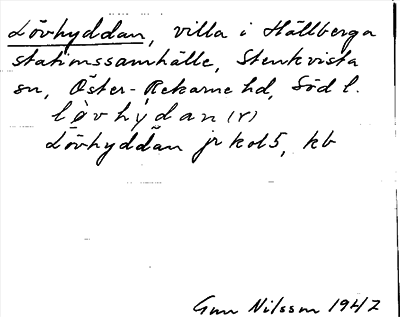 Lövhyddan, villa i Hällberga
stationssamhälle, Stenkvista
sn, Öster-Rekarne hd, Söd l.
lö̀vhỳdan (r)
Lövhyddan jr kol 5, kb
Gun Nilsson 1947